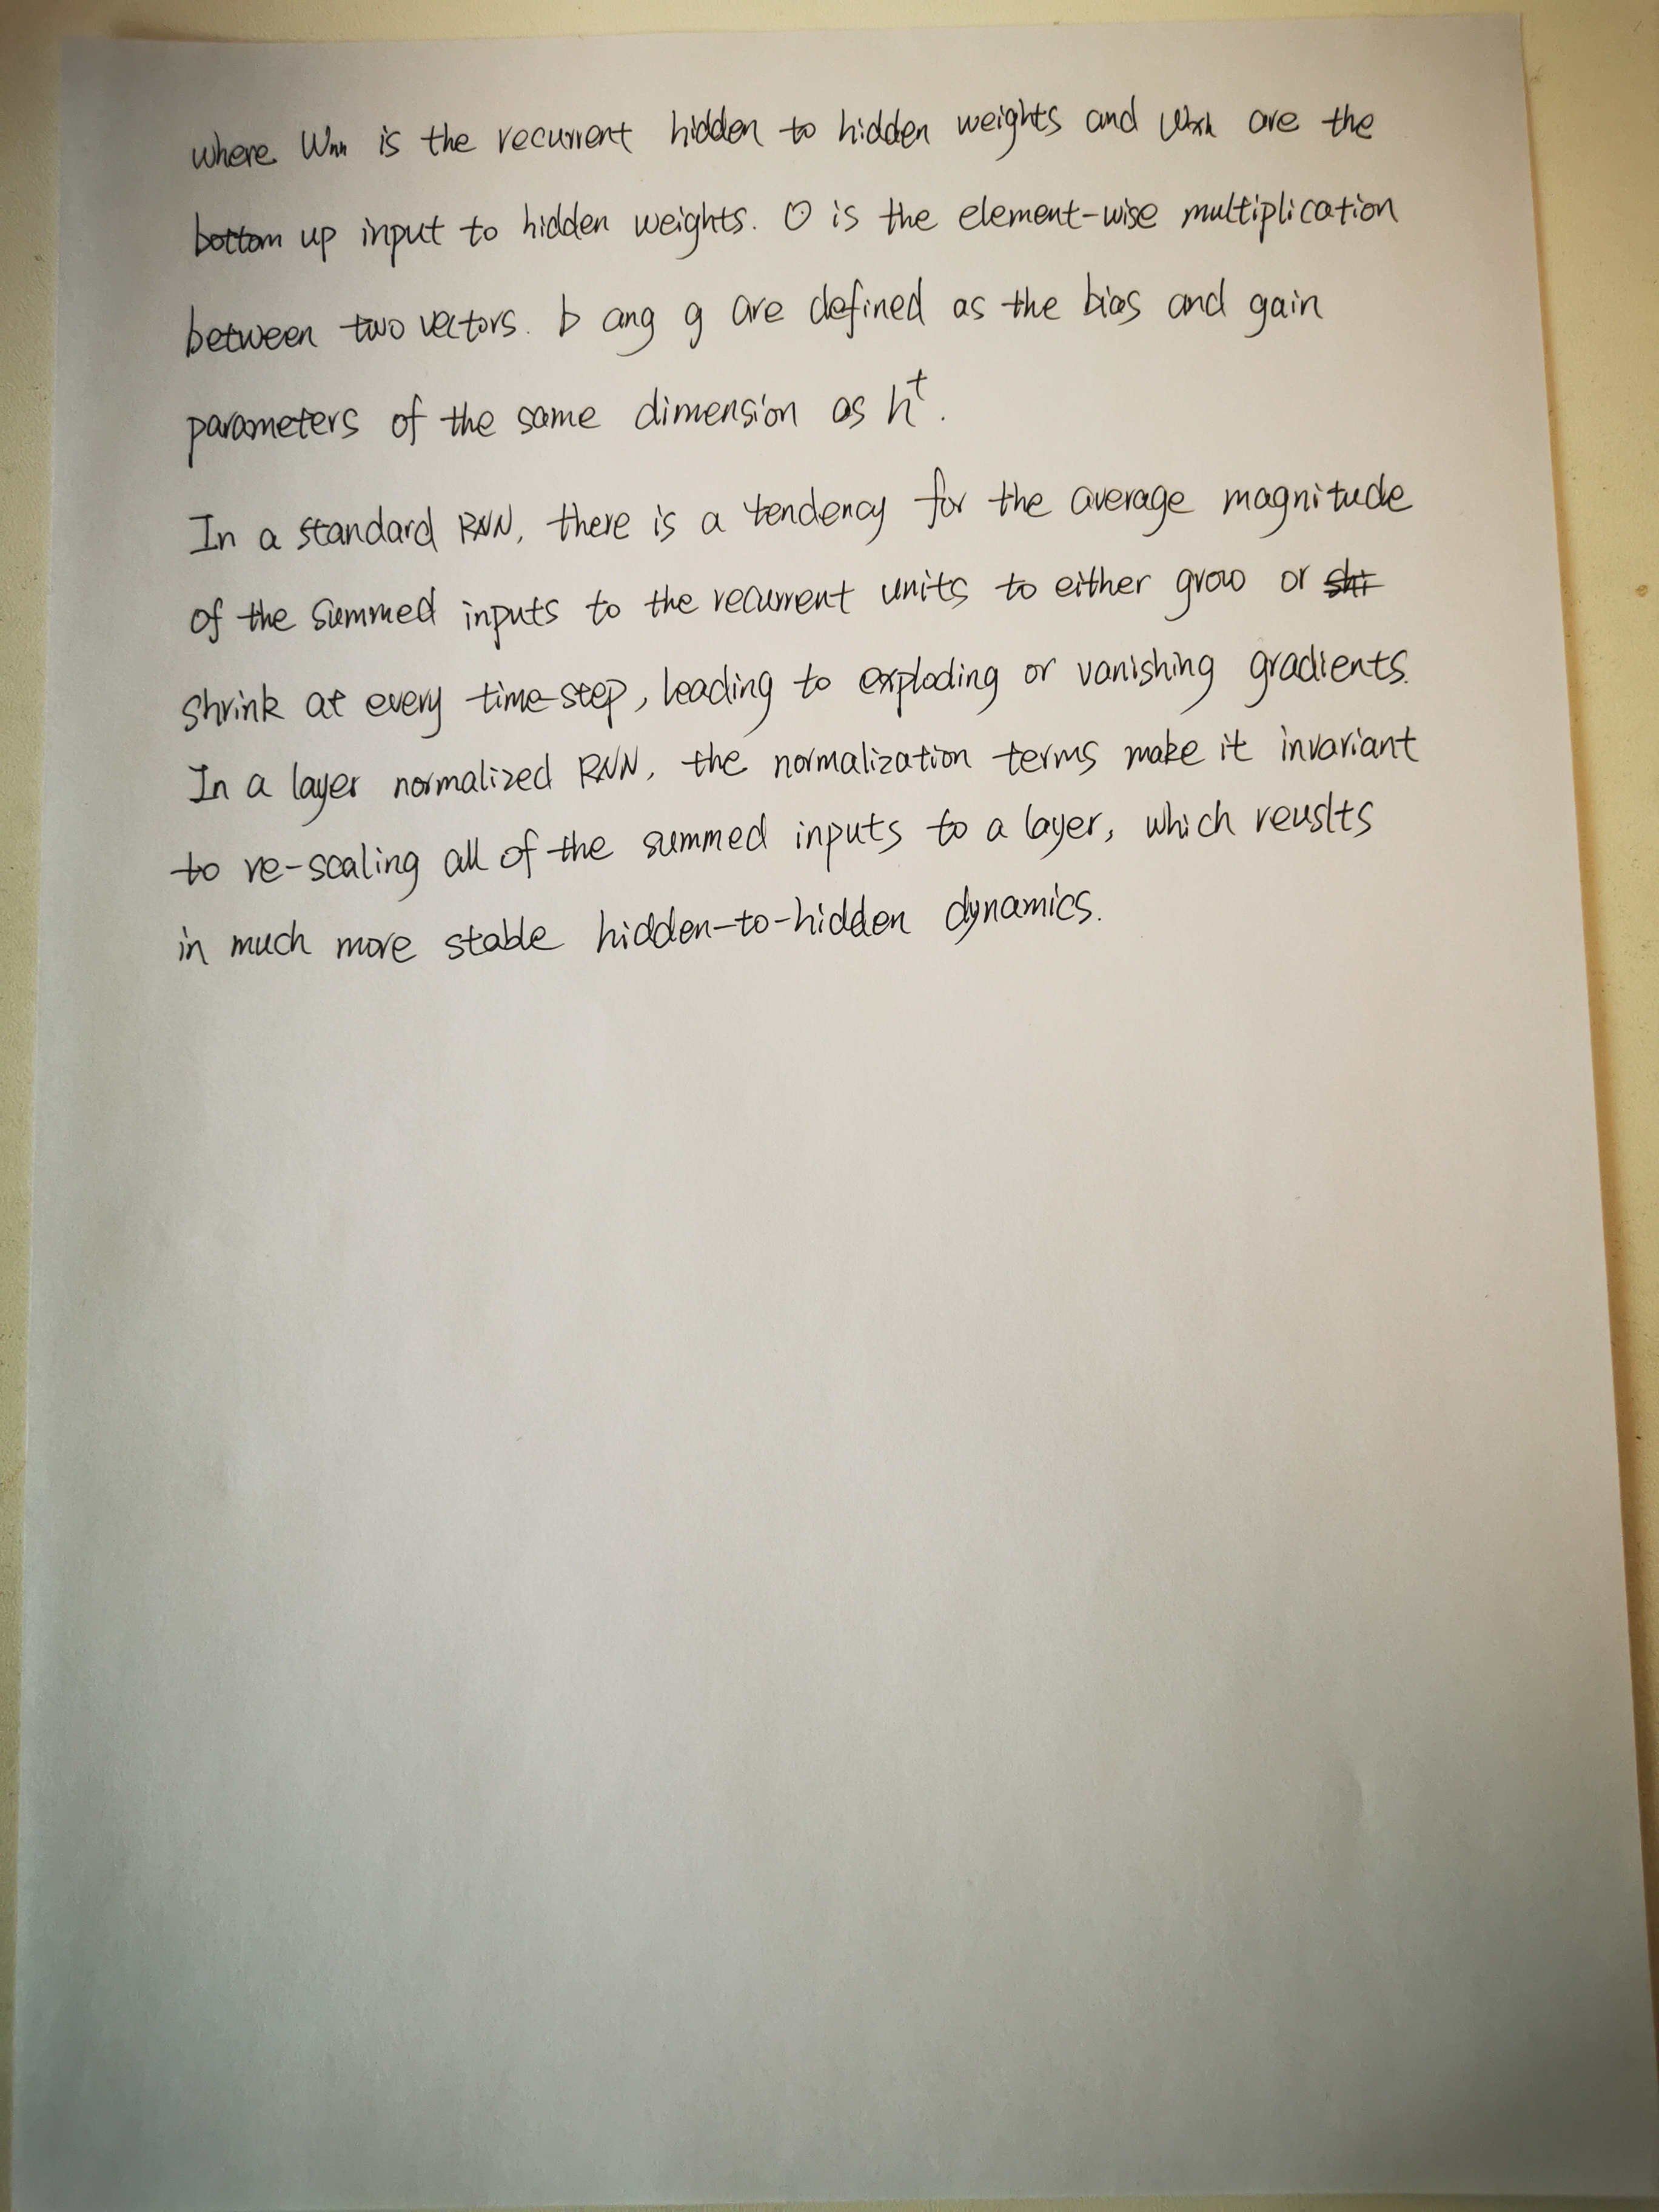 where Whh is the recurrent hidden to hidden weights and Wxh are the
bottom up input to hidden weights. ⊙ is the element-wise multiplication
between two vectors. b ang g are defined as the bias and gain
parameters of the same dimension as hᵗ.
In a standard RNN, there is a tendency for the average magnitude
of the summed inputs to the recurrent units to either grow or
shrink at every time-step, leading to exploding or vanishing gradients.
In a layer normalized RNN, the normalization terms make it invariant
to re-scaling all of the summed inputs to a layer, which reuslts
in much more stable hidden-to-hidden dynamics.